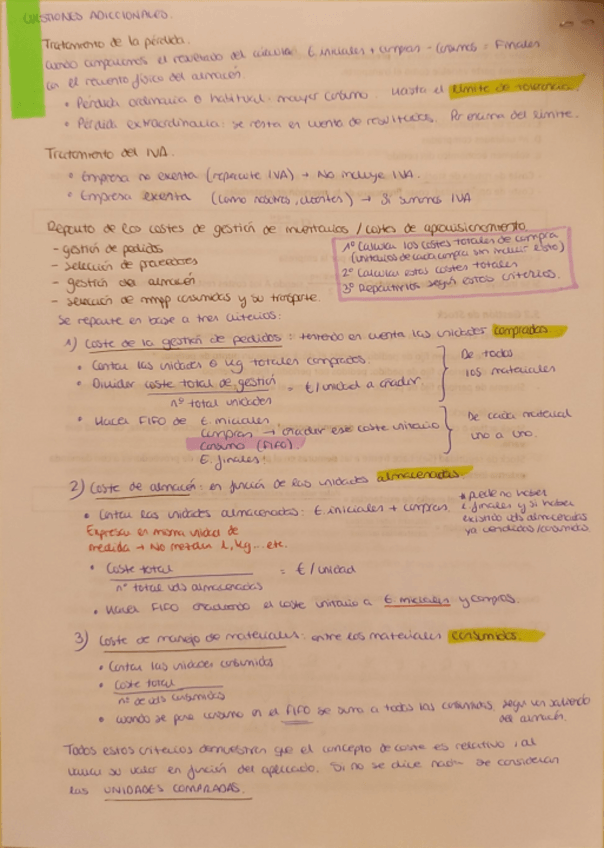 CUESTIONES ADICIONALES.
Tratamiento de la pérdida.
cuando comparamos el resultado del cálculo E. iniciales + compras - consumos = Finales
con el recuento físico del almacén
• Pérdida ordinaria o habitual: mayor consumo. Hasta el límite de tolerancia.
• Pérdida extraordinaria: se resta en cuenta de resultados. Por encima del límite.
Tratamiento del IVA.
• Empresa no exenta (repercute IVA) → No incluye IVA.
• Empresa exenta (como nosotros, clientes) → Si sumamos IVA
Reparto de los costes de gestión de inventarios / costes de aprovisionamiento
- gestión de pedidos
- selección de proveedores
- gestión del almacén
- selección de mmpp consumidas y su transporte.
1º Calcular los costes totales de compra
(unitarios de cada compra sin incluir esto)
2º Calcular estos costes totales
3º Repartirlos según estos criterios.
Se reparte en base a tres criterios:
1) Coste de la gestión de pedidos: teniendo en cuenta las unidades compradas
• Contar las unidades o kg totales comprados.
• Dividir coste total de gestión / nº total unidades = €/unidad a añadir
De todos
los materiales
• Hacer FIFO de E. iniciales
Compras → añadir ese coste unitario
Consumo (FIFO).
E. finales.
De cada material
uno a uno.
2) Coste de almacén: en función de las unidades almacenadas.
• Contar las unidades almacenadas: E. iniciales + compras.
* puede no haber
E. finales y si haber
existido uds almacenadas
ya vendidas/consumidas.
Expresar en misma unidad de
medida → No mezclar l, kg... etc.
• Coste total / nº total uds almacenadas = €/unidad
• Hacer FIFO añadiendo el coste unitario a E. iniciales y compras.
3) Coste de manejo de materiales: entre los materiales consumidos.
• Contar las unidades consumidas
• Coste total / nº de uds consumidas
• cuando se pone consumo en el FIFO se suma a todos las consumidas, según van saliendo
del almacén.
Todos estos criterios demuestran que el concepto de coste es relativo, al
variar su valor en función del aplicado. Si no se dice nada se consideran
las UNIDADES COMPRADAS.